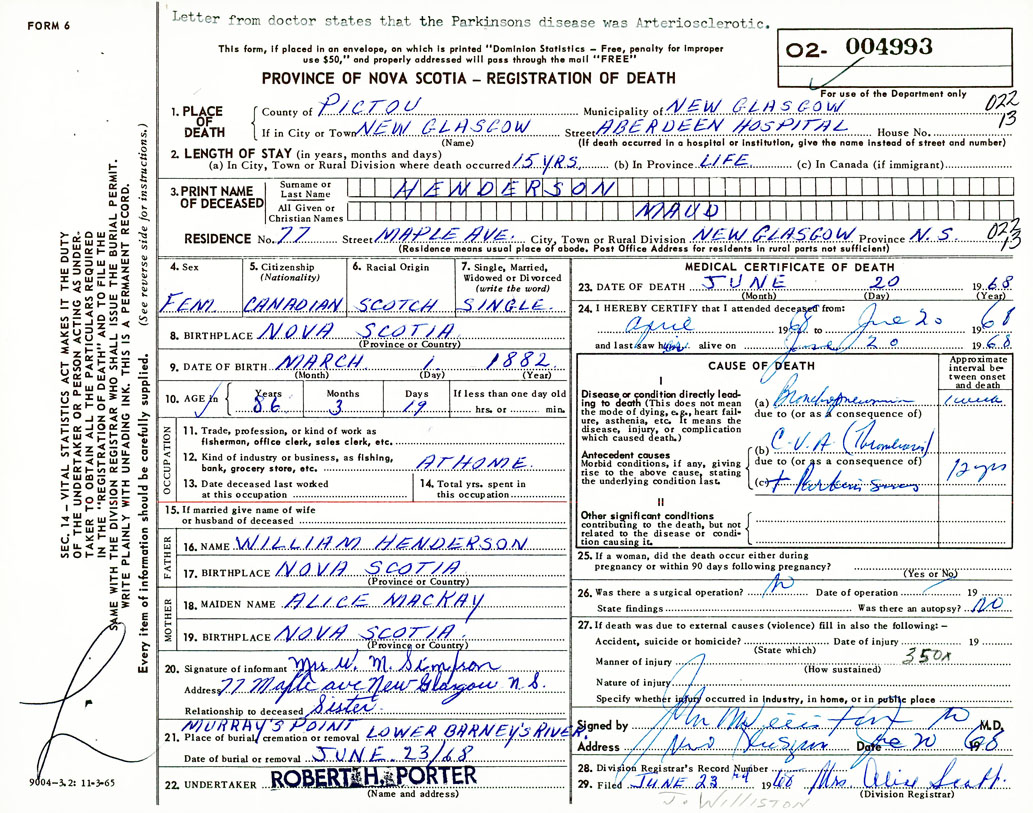 FORM 6
Letter from doctor states that the Parkinsons disease was Arteriosclerotic.
This form, if placed in an envelope, on which is printed "Dominion Statistics – Free, penalty for improper
use $50," and properly addressed will pass through the mail "FREE"
PROVINCE OF NOVA SCOTIA – REGISTRATION OF DEATH
O2- 004993
For use of the Department only
022
13
1. PLACE OF DEATH
County of PICTOU Municipality of NEW GLASGOW
If in City or Town NEW GLASGOW Street ABERDEEN HOSPITAL House No.
(Name) (If death occurred in a hospital or institution, give the name instead of street and number)
2. LENGTH OF STAY (in years, months and days)
(a) In City, Town or Rural Division where death occurred 15 YRS. (b) In Province LIFE (c) In Canada (if immigrant)
3. PRINT NAME OF DECEASED
Surname or Last Name HENDERSON
All Given or Christian Names MAUD
RESIDENCE No. 77 Street MAPLE AVE. City, Town or Rural Division NEW GLASGOW Province N. S.
(Residence means usual place of abode. Post Office Address for residents in rural parts not sufficient)
022
13
4. Sex
FEM
5. Citizenship (Nationality)
CANADIAN
6. Racial Origin
SCOTCH
7. Single, Married, Widowed or Divorced (write the word)
SINGLE.
8. BIRTHPLACE NOVA SCOTIA
(Province or Country)
9. DATE OF BIRTH MARCH 1 1882
(Month) (Day) (Year)
10. AGE In Years Months Days If less than one day old
86 3 19 hrs. or min.
OCCUPATION
11. Trade, profession, or kind of work as
fisherman, office clerk, sales clerk, etc.
12. Kind of industry or business, as fishing,
bank, grocery store, etc. AT HOME.
13. Date deceased last worked
at this occupation
14. Total yrs. spent in
this occupation
15. If married give name of wife
or husband of deceased
FATHER
16. NAME WILLIAM HENDERSON
17. BIRTHPLACE NOVA SCOTIA
(Province or Country)
MOTHER
18. MAIDEN NAME ALICE MACKAY
19. BIRTHPLACE NOVA SCOTIA.
(Province or Country)
20. Signature of informant Mrs W. M. Simpson
Address 77 Maple ave New Glasgow N. S.
Relationship to deceased Sister.
MURRAY'S POINT
21. Place of burial, cremation or removal LOWER BARNEY'S RIVER.
Date of burial or removal JUNE 23/68
22. UNDERTAKER ROBERT H. PORTER
(Name and address)
MEDICAL CERTIFICATE OF DEATH
23. DATE OF DEATH JUNE 20 1968
(Month) (Day) (Year)
24. I HEREBY CERTIFY that I attended deceased from:
April 1968 to June 20 1968
and last saw her alive on June 20 1968
CAUSE OF DEATH
Approximate interval between onset and death
I
Disease or condition directly leading to death (This does not mean
the mode of dying, e.g., heart failure, asthenia, etc. It means the
disease, injury, or complication
which caused death.)
(a) Bronchopneumonia 1 week
due to (or as a consequence of)
Antecedent causes
Morbid conditions, if any, giving
rise to the above cause, stating
the underlying condition last.
(b) C.V.A (Thrombosis)
due to (or as a consequence of)
(c) + Parkinsons 12 yrs
II
Other significant conditions
contributing to the death, but not
related to the disease or condition causing it
25. If a woman, did the death occur either during
pregnancy or within 90 days following pregnancy?
(Yes or No)
26. Was there a surgical operation? No Date of operation 19
State findings Was there an autopsy? NO
27. If death was due to external causes (violence) fill in also the following: –
Accident, suicide or homicide? Date of injury 19
(State which)
350x
Manner of injury
(How sustained)
Nature of injury
Specify whether injury occurred in industry, in home, or in public place
Signed by M.D.
Address New Glasgow Date June 20 1968
28. Division Registrar's Record Number
29. Filed JUNE 23rd 1968 Mrs. Alice Scott
(Division Registrar)
J. WILLISTON
SEC. 14 – VITAL STATISTICS ACT MAKES IT THE DUTY
OF THE UNDERTAKER OR PERSON ACTING AS UNDERTAKER
TO OBTAIN ALL THE PARTICULARS REQUIRED
IN THE "REGISTRATION OF DEATH" AND TO FILE THE
SAME WITH THE DIVISION REGISTRAR WHO SHALL ISSUE THE BURIAL PERMIT.
WRITE PLAINLY WITH UNFADING INK. THIS IS A PERMANENT RECORD.
Every item of information should be carefully supplied. (See reverse side for instructions.)
9004-3.2: 11-3-65